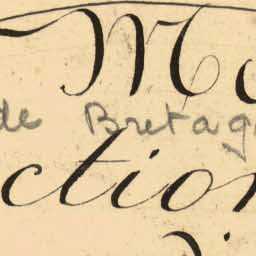 M
de Bretag
ction